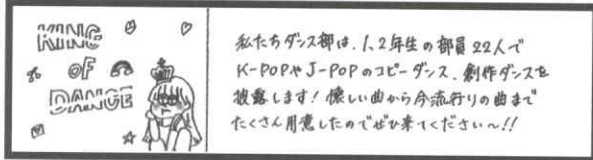 KING
OF
DANCE
私たちダンス部は、1、2年生の部員22人で
K-POPやJ-POPのコピーダンス、創作ダンスを
披露します!懐しい曲から今流行りの曲まで
たくさん用意したのでぜひ来てください〜!!